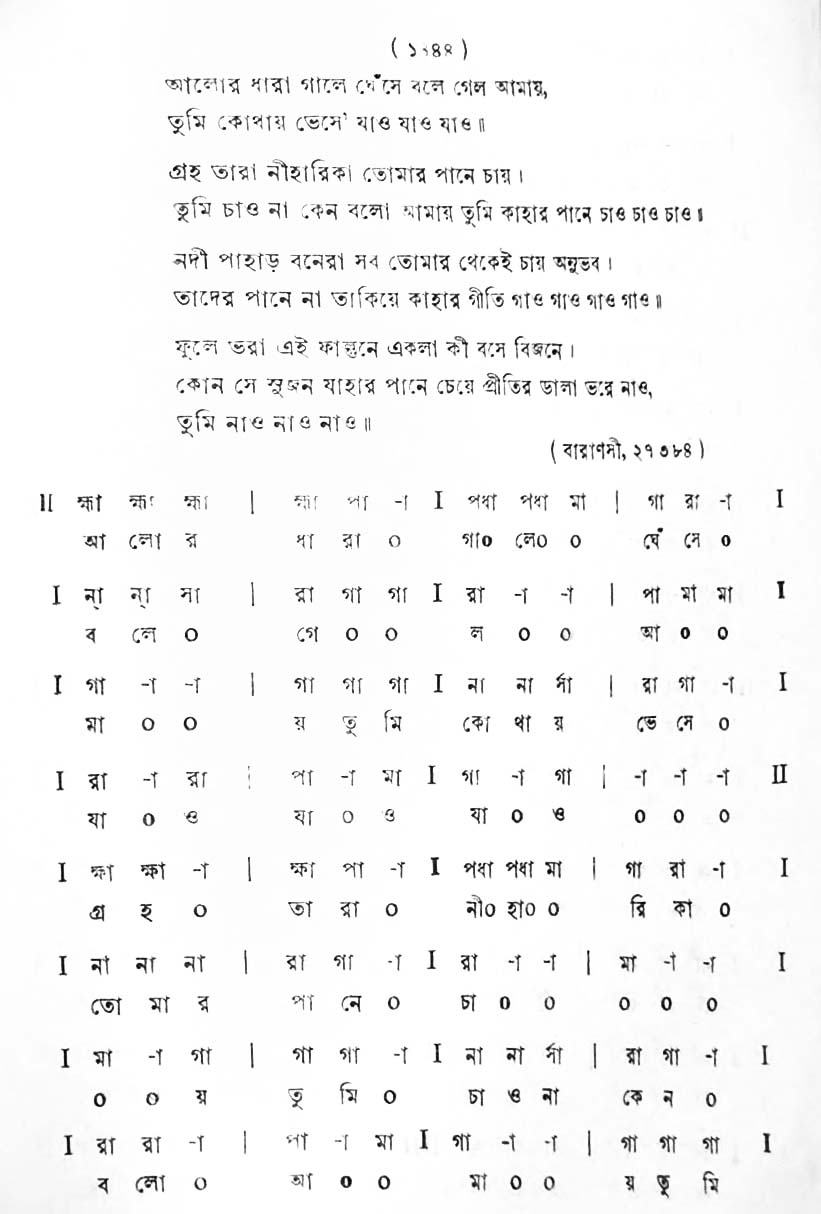 ( ১৩৪৪ )
আলোর ধারা গালে ঘেঁসে বলে গেল আমায়,
তুমি কোথায় ভেসে' যাও যাও যাও॥
গ্রহ তারা নীহারিকা তোমার পানে চায়।
তুমি চাও না কেন বলো আমায় তুমি কাহার পানে চাও চাও চাও॥
নদী পাহাড় বনেরা সব তোমার থেকেই চায় অনুভব।
তাদের পানে না তাকিয়ে কাহার গীতি গাও গাও গাও গাও॥
ফুলে ভরা এই ফাল্গুনে একলা কী বসে বিজনে।
কোন সে সুজন যাহার পানে চেয়ে প্রীতির ডালা ভরে নাও,
তুমি নাও নাও নাও॥
( বারাণসী, ২৭৩৮৪ )
II হ্মা হ্মা হ্মা | হ্মা পা -া I পধা পধা মা | গা রা -া I
আ লো র ধা রা ০ গা০ লে০ ০ ঘেঁ সে ০
I না্ না্ সা | রা গা গা I রা -া -া | পা মা মা I
ব লে ০ গে ০ ০ ল ০ ০ আ ০ ০
I গা -া -া | গা গা গা I না না র্সা | রা গা -া I
মা ০ ০ য় তু মি কো থা য় ভে সে ০
I রা -া রা | পা -া মা I গা -া গা | -া -া -া II
যা ০ ও যা ০ ও যা ০ ও ০ ০ ০
I হ্মা হ্মা -া | হ্মা পা -া I পধা পধা মা | গা রা -া I
গ্র হ ০ তা রা ০ নী০ হা০ ০ রি কা ০
I না না না | রা গা -া I রা -া -া | মা -া -া I
তো মা র পা নে ০ চা ০ ০ ০ ০ ০
I মা -া গা | গা গা -া I না না র্সা | রা গা -া I
০ ০ য় তু মি ০ চা ও না কে ন ০
I রা রা -া | পা -া মা I গা -া -া | গা গা গা I
ব লো ০ আ ০ ০ মা ০ ০ য় তু মি